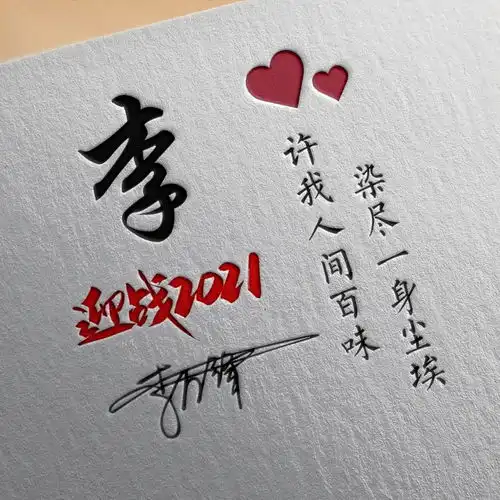 李
迎战2021
许我人间百味
染尽一身尘埃